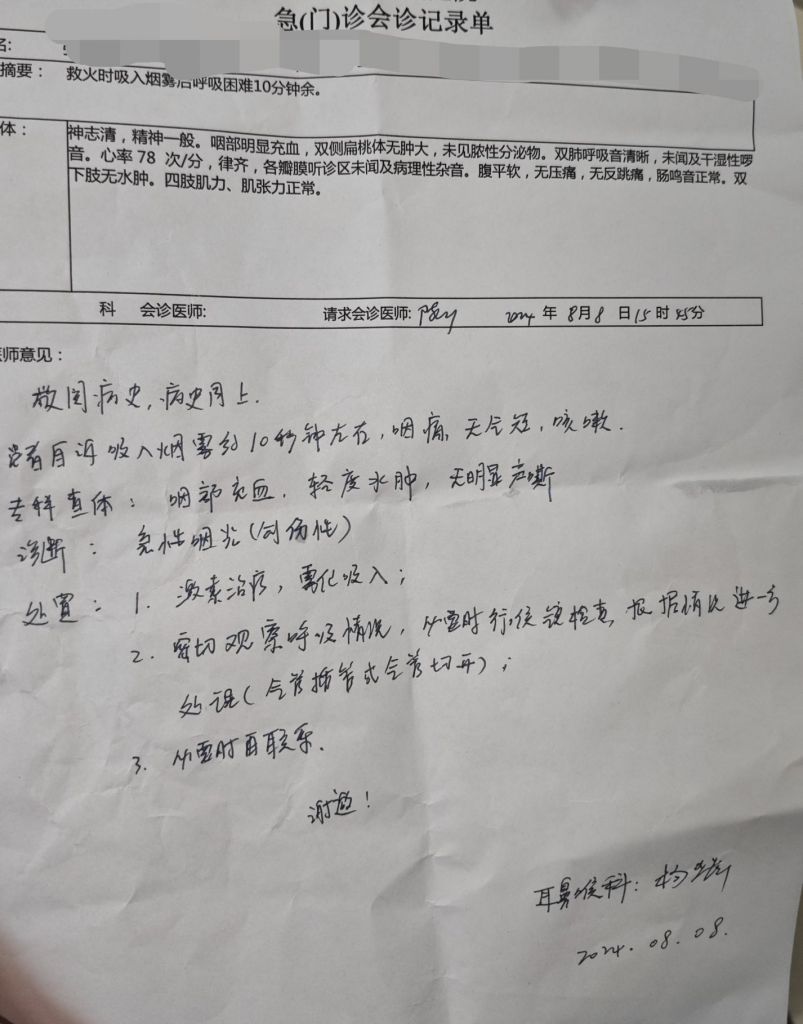 急(门)诊会诊记录单
名:
摘要： 救火时吸入烟雾后呼吸困难10分钟余。
体： 神志清，精神一般。咽部明显充血，双侧扁桃体无肿大，未见脓性分泌物。双肺呼吸音清晰，未闻及干湿性啰
音。心率 78 次/分，律齐，各瓣膜听诊区未闻及病理性杂音。腹平软，无压痛，无反跳痛，肠鸣音正常。双
下肢无水肿。四肢肌力、肌张力正常。
科 会诊医师: 请求会诊医师: 2024 年 8月8 日15 时 45分
医师意见：
敬阅病史，病史同上.
患者自诉吸入烟雾约10秒钟左右，咽痛，无气短，咳嗽.
专科查体： 咽部充血，轻度水肿，无明显声嘶
诊断： 急性咽炎(创伤性)
处置： 1. 激素治疗，雾化吸入；
2. 密切观察呼吸情况，必要时行喉镜检查，根据情况进一步
处理(气管插管或气管切开)；
3. 必要时再联系.
谢邀！
耳鼻喉科：杨
2024.08.08.